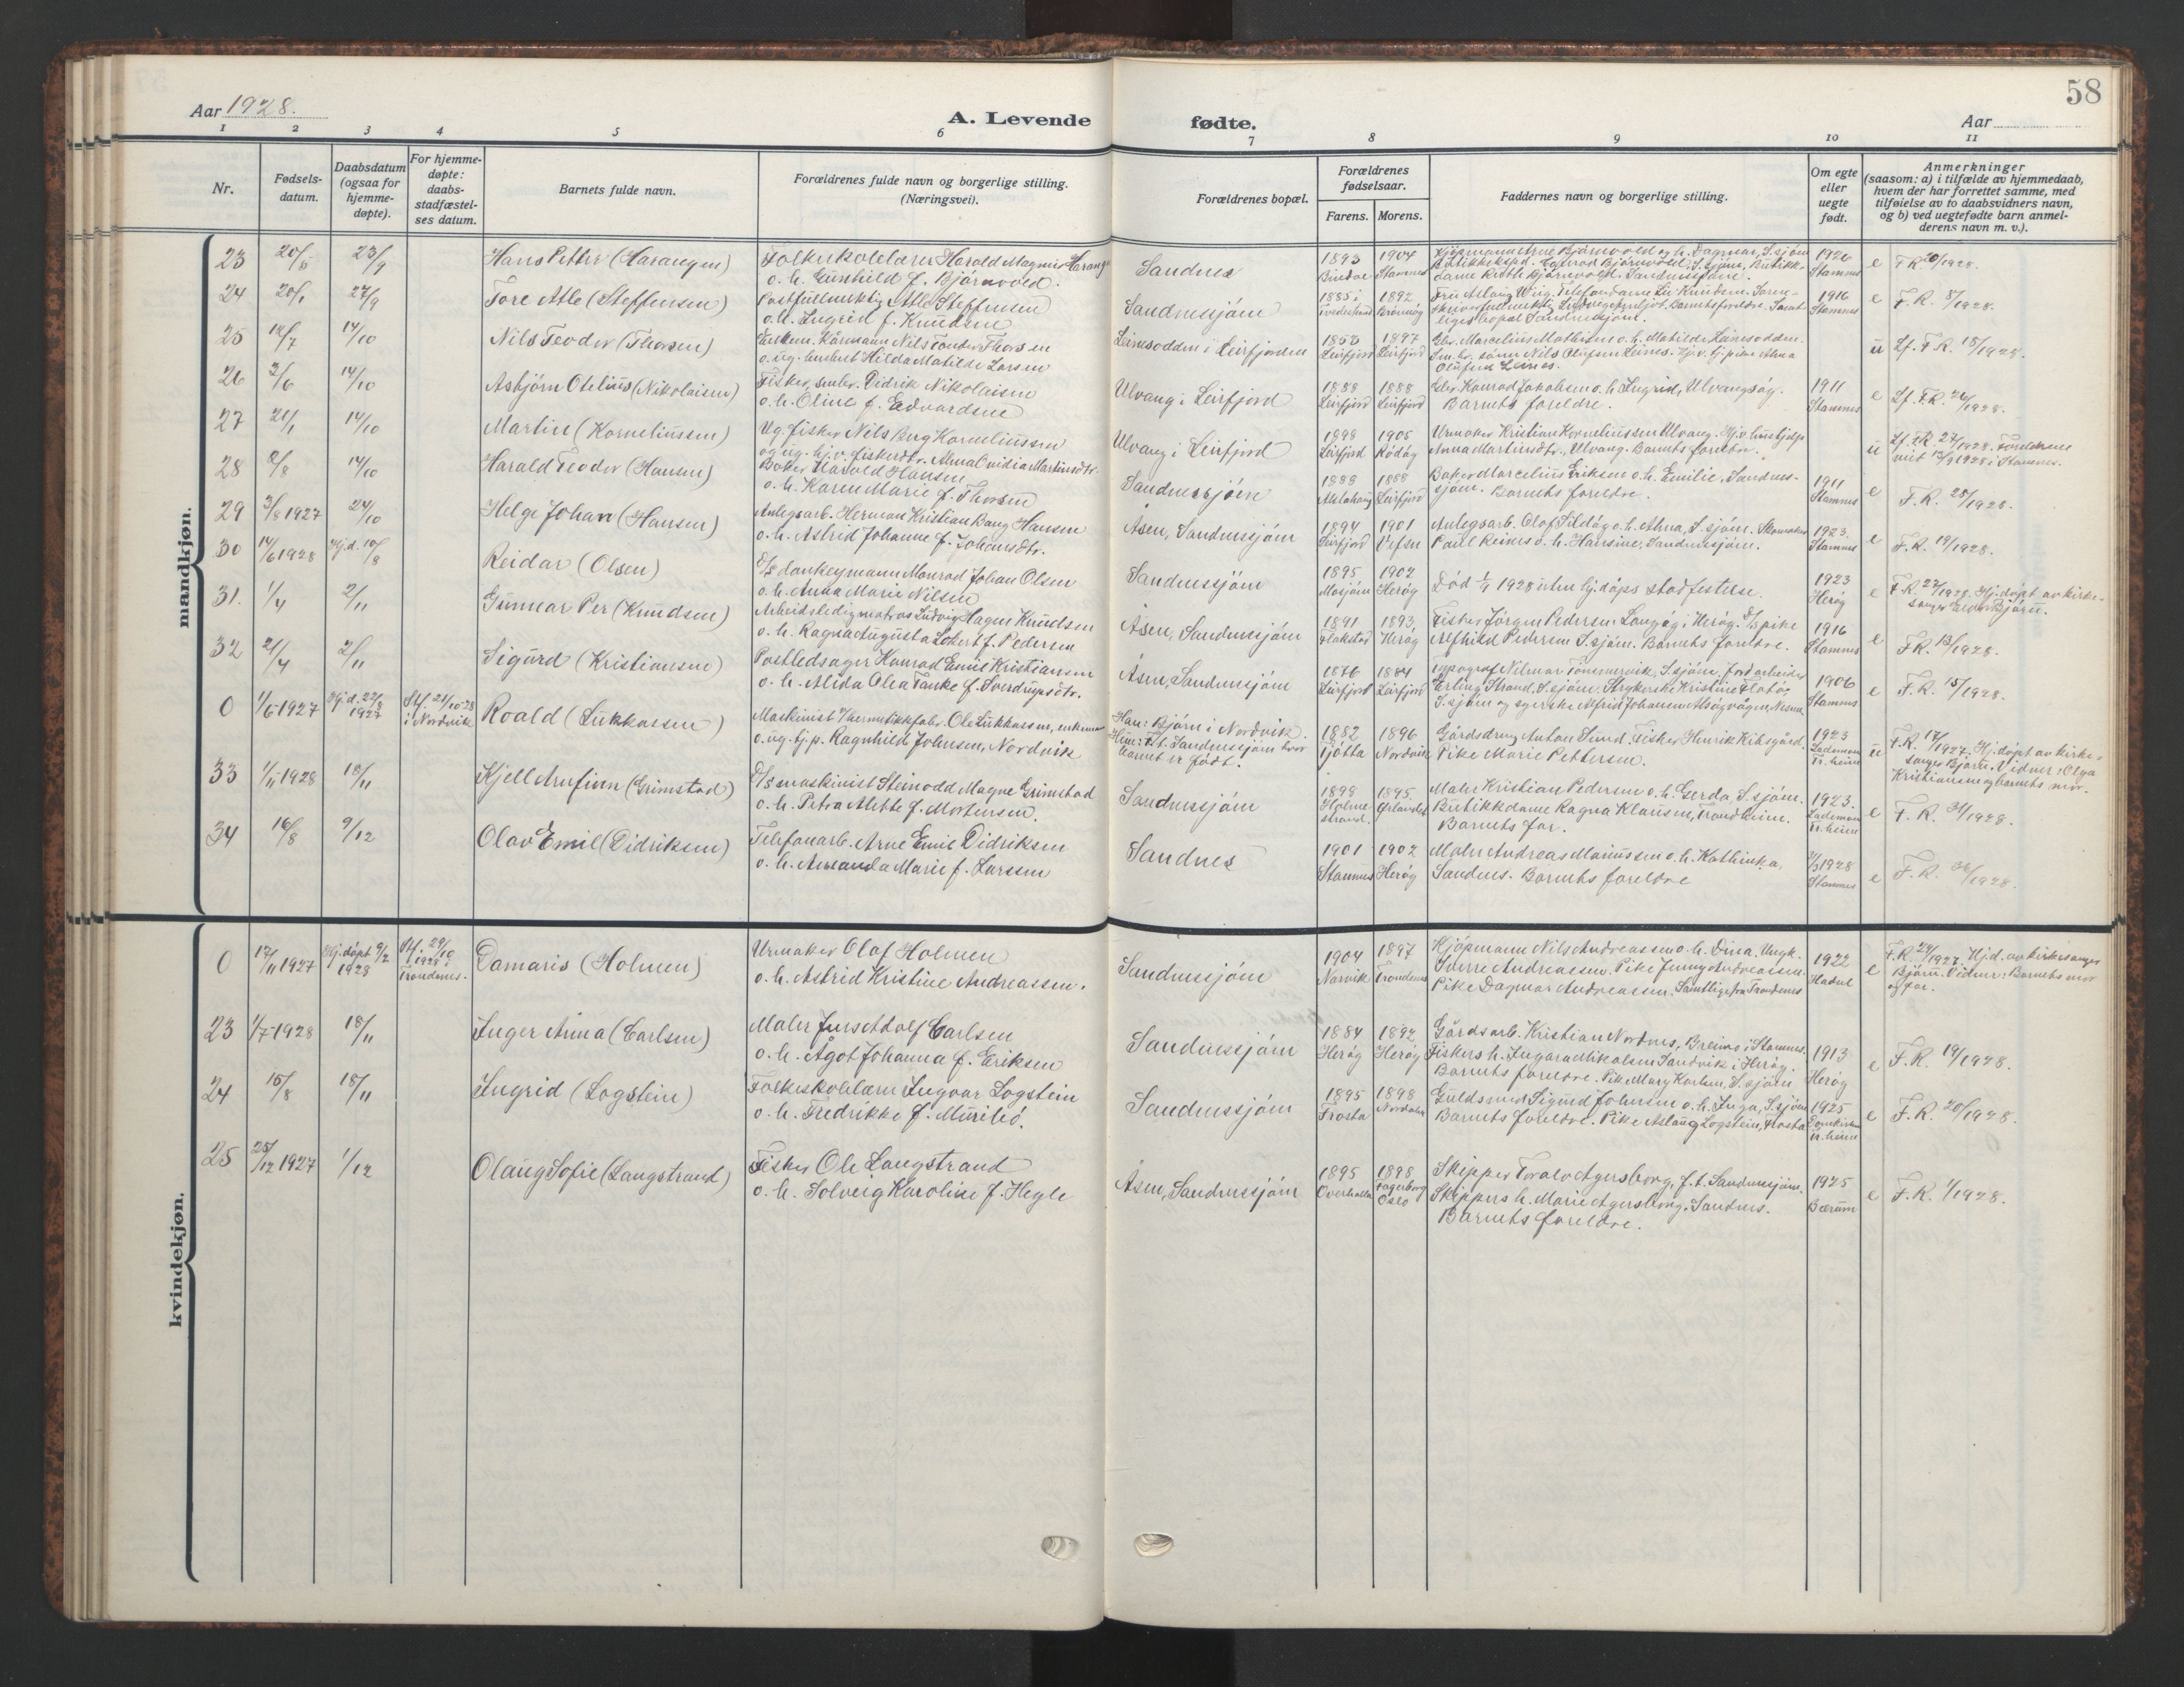 58
Aar 1928.
A. Levende
fødte.
Aar
1 2 3 4 5 6
7 8 9 10 11
Nr.
Fødsels-
datum.
Daabsdatum
(ogsaa for
hjemme-
døpte).
For hjemme-
døpte:
daabs-
stadfæstel-
ses datum.
Barnets fulde navn.
Forældrenes fulde navn og borgerlige stilling.
(Næringsvei).
Forældrenes bopæl.
Forældrenes
fødselsaar.
Farens. Morens.
Faddernes navn og borgerlige stilling.
Om egte
eller
uegte
født.
Anmerkninger
(saasom: a) i tilfælde av hjemmedaab,
hvem der har forrettet samme, med
tilføielse av to daabsvidners navn,
og b) ved uegtefødte barn anmel-
derens navn m. v.).
mandkjøn.
23 23/9 Hans Petter (Harangen)
Folkeskolelærer Harald Magnus Harang
o. h. Gunhild f. Bjørnvold.
Sandnes
1893 Bindal 1904 Stamnes
1926 Stamnes e F.R. 20/1928.
24 20/1 27/9 Tore Atle (Steffensen)
Postfullmektig Atle Steffensen
o. h. Ingrid f. Knudsen
Sandnessjøen
1885 1892 Brønnøy
1916 Stamnes e F.R. 5/1928.
25 14/10 Nils Teodor (Thorsen)
Nils Teodor Thorsen
o. ug. Hilda Matilde Larsen
Leinesodden i Leirfjorden
Leirfjord 1897 Leirfjord
Gbr. Marcelius Mathisen o. h. Matilde Leinesodden.
u Lf. F.R. 15/1928.
26 3/6 14/10 Asbjørn Otelius (Nikolaisen)
Fisker, Didrik Nikolaisen
o. h. Oline f. Edvardsen
Ulvang i Leirfjord
1888 Leirfjord 1888 Leirfjord
Gbr. Konrad Jakobsen o. h. Ingrid, Ulvangsøy.
Barnets foreldre.
1911 Stamnes e Lf. F.R. 26/1928.
27 21/1 14/10 Martin (Korneliussen)
Ug. fisker Nils Berg Korneliussen
Ulvang i Leirfjord
1898 Leirfjord 1905 Rødøy
Urmaker Kristian Korneliussen Ulvang.
Anna Martinsdtr., Ulvang. Barnets foreldre.
u Lf. F.R. 27/1928. Foreldrene
28 8/8 14/10 Harald Teodor (Hansen)
Baker Harald Hansen
o. h. Karen Marie f. Thorsen
Sandnessjøen
1888 Alstahaug 1888 Leirfjord
Baker Marcelius Eriksen o. h. Emilie, Sandnes-
sjøen. Barnets foreldre.
1911 Stamnes e F.R. 25/1928.
29 3/8 1927 24/10 Helge Johan (Hansen)
Anlegsarb. Herman Kristian Bang Hansen
o. h. Astrid Johanne f. Johansdtr.
Åsen, Sandnessjøen
1894 Leirfjord 1901 Vefsn
Anlegsarb. Olaf Sildøy o. h. Anna, S.sjøen. Skomaker
Paul Reines o. h. Hansine, Sandnessjøen.
1923. Stamnes e F.R. 19/1928.
30 14/6 1928 Hj.d. 10/8 Reidar (Olsen)
D/S donkeymann Monrad Johan Olsen
o. h. Anna Marie Nilsen
Sandnessjøen
1895 Mosjøen 1902 Herøy
Død 1/9 1928 uten hj.døps stadfestelse.
1923 Herøy e F.R. 22/1928. Hj.døpt av kirke-
31. 1/4 2/11 Gunnar Per (Knudsen)
Arbeidsledig matros Ludvig Hagen Knudsen
o. h. Ragna Augusta Lokert f. Pedersen
Åsen, Sandnessjøen
1891 Flakstad 1893, Herøy
Fisker Jørgen Pedersen Langøy i Herøy.
Alfhild Pedersen S.sjøen. Barnets foreldre.
1916 Stamnes e F.R. 13/1928.
32 21/4 2/11 Sigurd (Kristiansen)
Postledsager Konrad Emil Kristiansen
o. h. Alida Olea Tanke f. Sverdrupsdtr.
Åsen, Sandnessjøen
1876 Leirfjord 1884 Leirfjord
Typograf Vilmar Tømmervik, S.sjøen, Jordarbeider
Erling Strand, S.sjøen. Strykerske Kristine Flatøy,
1906 Stamnes e F.R. 15/1928.
0 1/5 1927 Hj.d. 22/8 1927 Stf. 21/10-28 i Nordvik Roald (Lukkassen)
Maskinist v/hermetikkfabr. Ole Lukkassen, enkemann
o. ug. tj.p. Ragnhild Johnsen, Nordvik
Han: Bjørn i Nordvik.
Hun: f.t. Sandnessjøen hvor
barnet er født.
1882 Tjøtta 1896 Nordvik
Gårdsdreng Anton Sund. Fisker Henrik Kibsgård.
Pike Marie Pettersen.
1923 Lademoen Tr.heim u F.R. 17/1927. Hj.døpt av kirke-
sanger Bjørn. Vidner: Olga
Kristiansen og barnets mor.
33 1/5 1928 18/11 Kjell Arnfinn (Grimstad)
D/S maskinist Steinodd Magne Grimstad
o. h. Petra Mette f. Mortensen.
Sandnessjøen
1898 Holme-
strand. 1895. Ørlandet
Maler Kristian Pedersen o. h. Gerda, S.sjøen.
Butikkdame Ragna Klausen, Trondheim.
Barnets far.
1923. Lademoen Tr.heim e F.R. 31/1928.
34 16/8 9/12 Olav Emil (Didriksen)
Telefonarb. Arne Emil Didriksen
o. h. Amanda Marie f. Larssen
Sandnes
1901 Stamnes 1902 Herøy
Maler Andreas Mariussen o. h. Kathinka,
Sandnes. Barnets foreldre
1928 Stamnes e F.R. 36/1928.
kvindekjøn.
0 17/11 1927 Hj.døpt 9/2 1928 Stf. 29/10 1928 i Trondenes. Damaris (Holmen)
Urmaker Olaf Holmen
o. h. Astrid Kristine Andreassen.
Sandnessjøen
1904 Narvik 1897 Trondenes
Kjøpmann Nils Andreassen o. h. Dina. Ungk.
Sverre Andreassen. Pike Jenny Andreassen.
Pike Dagmar Andreassen. Samtlige fra Trondenes
1922 Hadsel e F.R. 24/1927. Hj.d. av kirkesanger
Bjørn. Vidner: Barnets mor
og far.
23 1/7 1928 18/11 Inger Anna (Carlsen)
Maler Jens Adolf Carlsen
o. h. Ågot Johanna f. Eriksen
Sandnessjøen
1884 Herøy 1892 Herøy
Gårdsarb. Kristian Nordnes, Breimo i Stamnes.
Fiskers h. Ingara Mikalsen Sandvik i Herøy.
Barnets foreldre. Pike Mary Karlsen, S.sjøen
1913 Herøy e F.R. 19/1928.
24 15/8 18/11 Ingrid (Logstein)
Folkeskolelærer Ingvar Logstein
o. h. Fredrikke f. Murilió.
Sandnessjøen
1895 Frosta 1898
Guldsmed Sigurd Johnsen o. h. Inga, S.sjøen
Barnets foreldre. Pike Aslaug Logstein, Frosta
1925 Domkirken Tr.heim e F.R. 20/1928.
25 25/12 1927 1/12 Olaug Sofie (Langstrand)
Fisker Ole Langstrand
o. h. Solveig Karoline f. Hegle
Åsen, Sandnessjøen
1895 Overhalla 1898 Fagerborg Oslo
Skipper Toralv Agersborg, f.t. Sandnessjøen.
Skippers h. Marie Agersborg, Sandnes.
Barnets foreldre.
1925 Bærum e F.R. 1/1928.